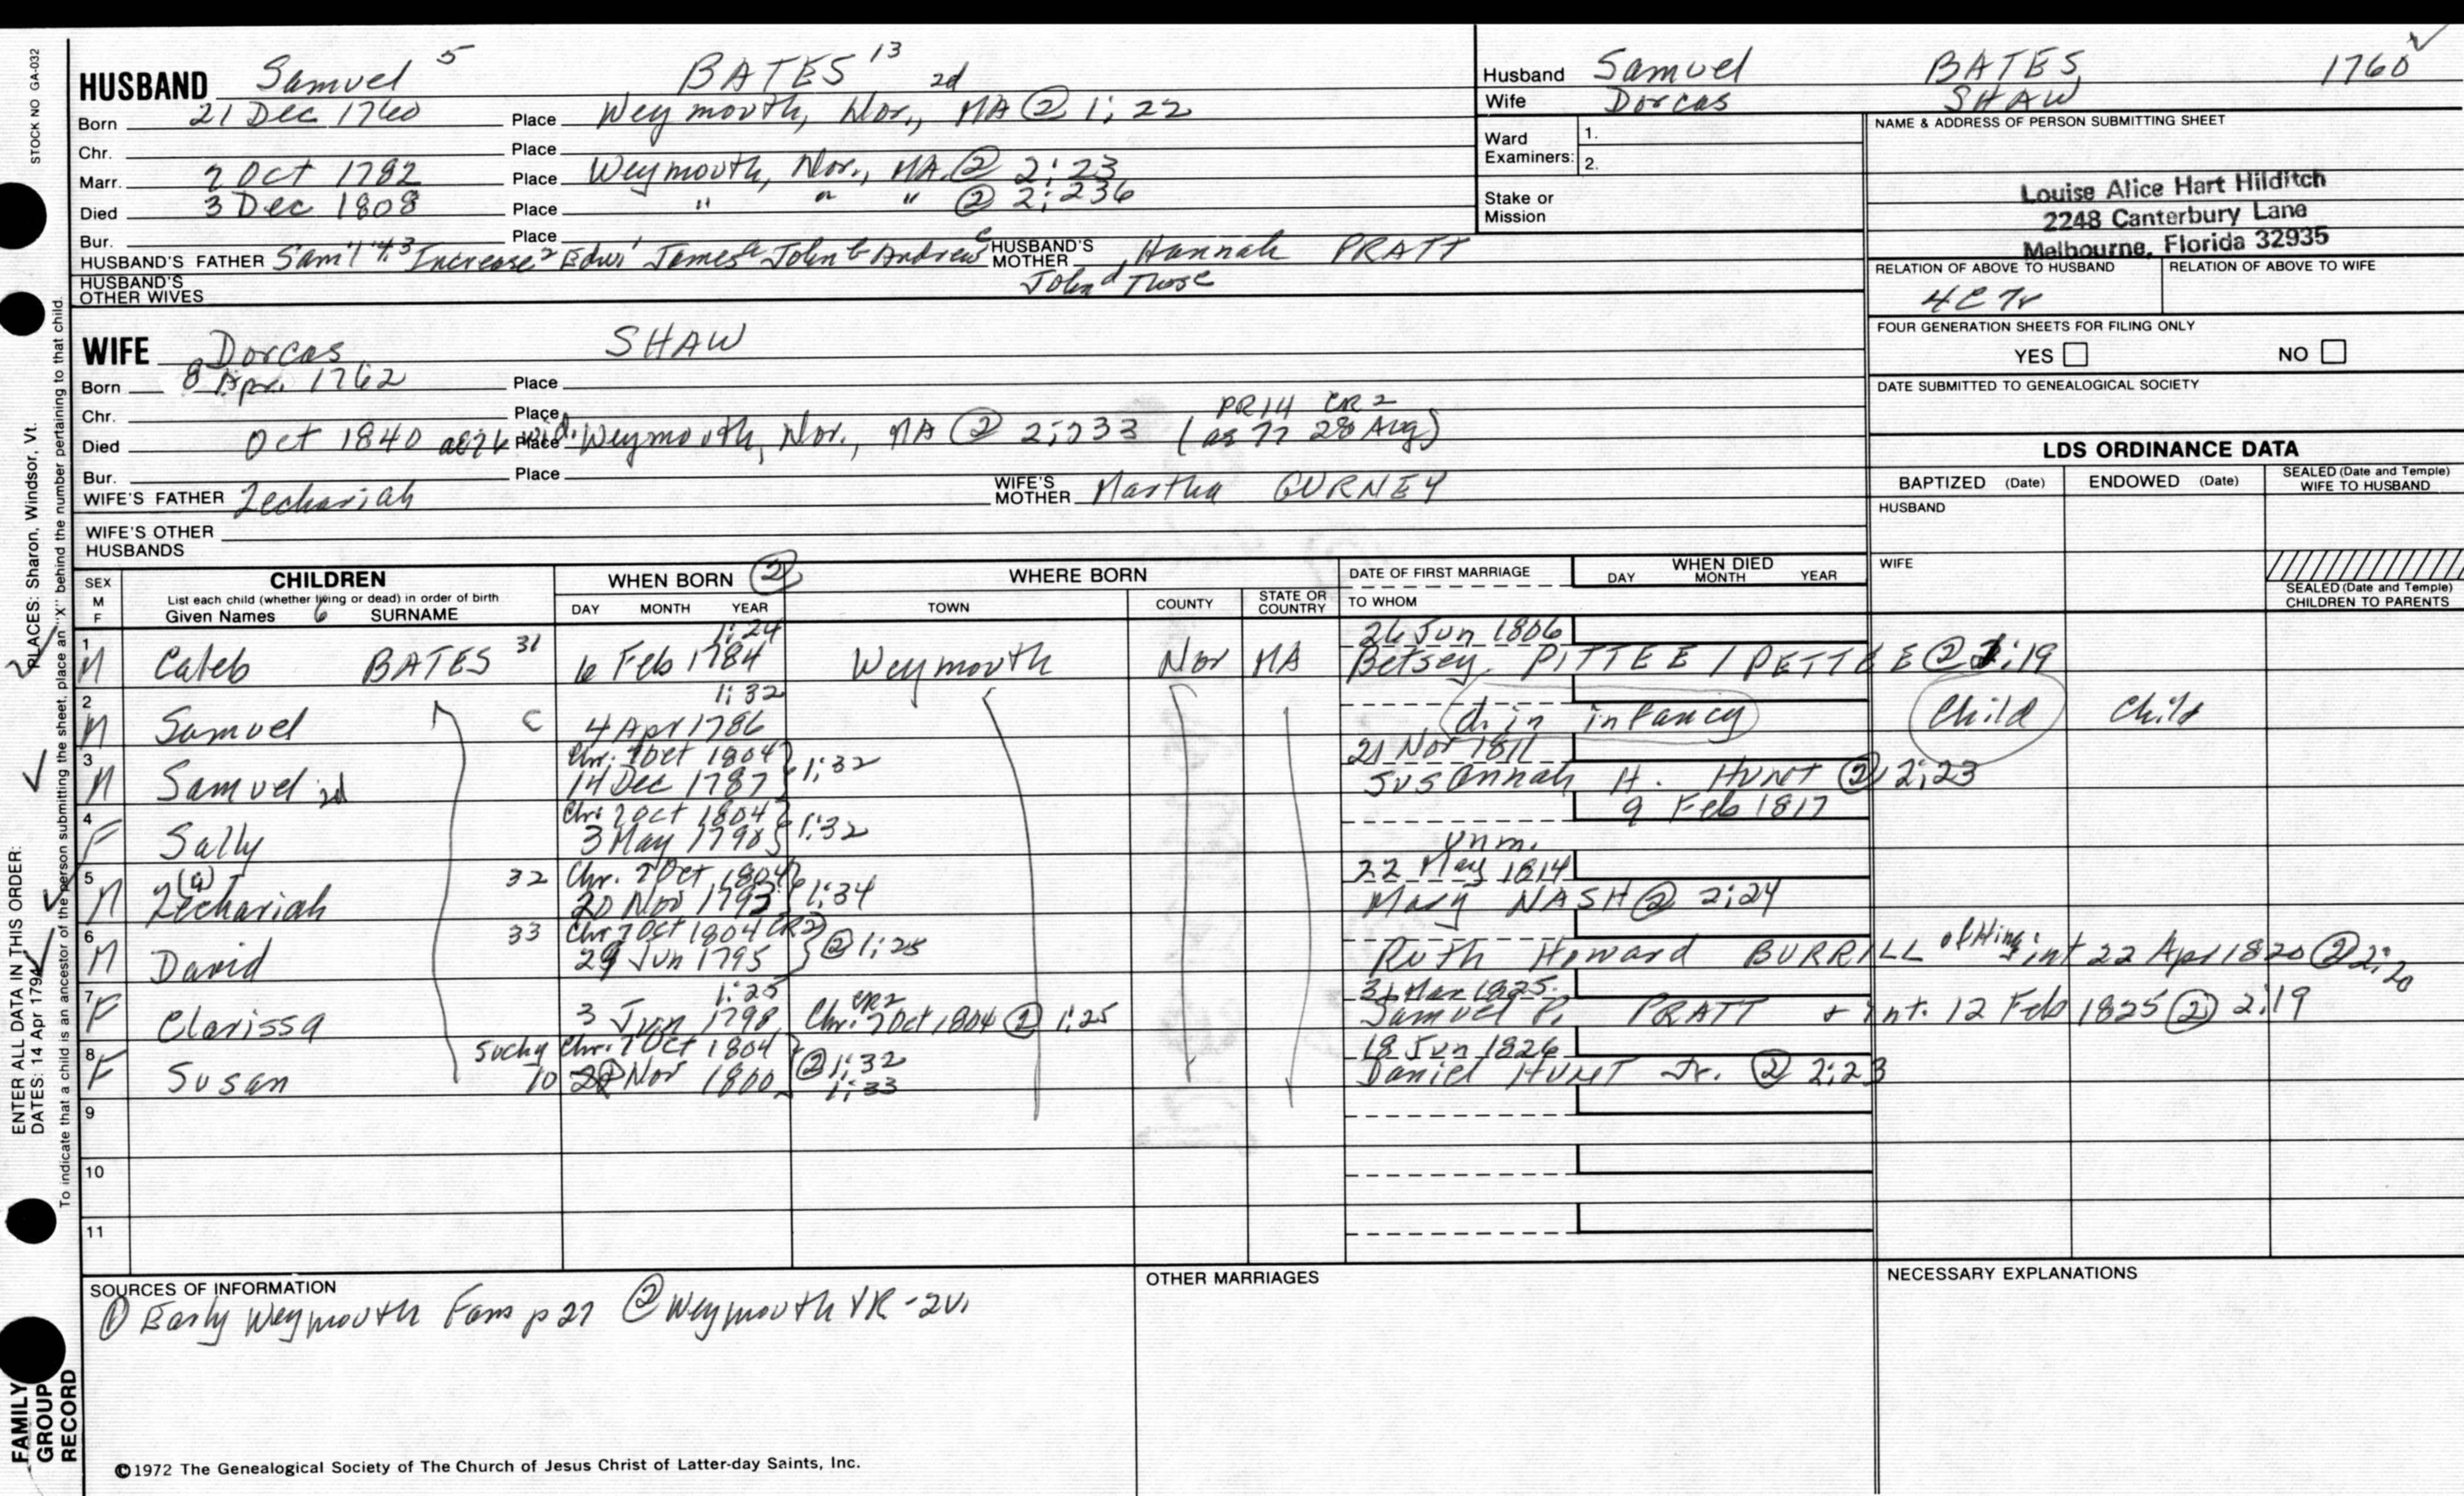 STOCK NO GA-032
HUSBAND Samuel 5 BATES 13 2d
Born 21 Dec 1760 Place Weymouth, Nor., MA @ 1:22
Chr. Place
Marr. 7 Oct 1782 Place Weymouth, Nor., MA. ② 2:23
Died 3 Dec 1808 Place " " " ② 2:236
Bur. Place
HUSBAND'S FATHER Sam'l 4, 3 Increase 2 Edw 1 James a John b Andrew c HUSBAND'S MOTHER Hannah PRATT
John d Thos e
HUSBAND'S OTHER WIVES
Husband Samuel BATES, 1760
Wife Dorcas SHAW
Ward Examiners: 1.
2.
Stake or Mission
NAME & ADDRESS OF PERSON SUBMITTING SHEET
Louise Alice Hart Hilditch
2248 Canterbury Lane
Melbourne, Florida 32935
RELATION OF ABOVE TO HUSBAND RELATION OF ABOVE TO WIFE
4C7r
FOUR GENERATION SHEETS FOR FILING ONLY
YES NO
DATE SUBMITTED TO GENEALOGICAL SOCIETY
WIFE Dorcas SHAW
Born 8 Apr. 1762 Place
Chr. Place
PR14 CR2
Died Oct 1840 Place Weymouth, Nor., MA @ 2:233 (ae 77 28 Aug)
Bur. Place
WIFE'S FATHER Zechariah WIFE'S MOTHER Martha GURNEY
WIFE'S OTHER HUSBANDS
LDS ORDINANCE DATA
BAPTIZED (Date) ENDOWED (Date) SEALED (Date and Temple) WIFE TO HUSBAND
HUSBAND
WIFE
SEALED (Date and Temple) CHILDREN TO PARENTS
SEX M F CHILDREN WHEN BORN ② WHERE BORN DATE OF FIRST MARRIAGE WHEN DIED
List each child (whether living or dead) in order of birth
Given Names 6 SURNAME DAY MONTH YEAR TOWN COUNTY STATE OR COUNTRY TO WHOM DAY MONTH YEAR
1:24 26 Jun 1806
1 M Caleb BATES 31 6 Feb 1784 Weymouth Nor MA Betsey PITTEE / PETTEE @ 2:19
1:32
2 M Samuel C 4 Apr 1786 d. in infancy Child Child
Chr. 7 Oct 1804 21 Nov 1811
3 M Samuel 2d 14 Dec 1787 1:32 Susannah H. HUNT ② 2:23
Chr. 7 Oct 1804 9 Feb 1817
4 F Sally 3 May 1790 1:32 unm.
Chr. 7 Oct 1804 22 May 1814
5 M Zechariah (a) 32 20 Nov 1792 1:34 Mary NASH @ 2:24
Chr 7 Oct 1804 CR2
6 M David 33 29 Jun 1795 ② 1:25 Ruth Howard BURRILL of Hing; int 22 Apr 1820 ② 2:20
1:25 CR2 31 Mar 1825
7 F Clarissa 3 Jun 1798 Chr. 7 Oct 1804 ② 1:25 Samuel P. PRATT + int. 12 Feb 1825 ② 2:19
Suchy Chr. 7 Oct 1804 18 Jun 1826
8 F Susan 10 Nov 1800 ② 1:32 1:33 Daniel HUNT Jr. ② 2:23
9
10
11
SOURCES OF INFORMATION
① Early Weymouth Fams p 27 ② Weymouth VR - 2v.
OTHER MARRIAGES
NECESSARY EXPLANATIONS
©1972 The Genealogical Society of The Church of Jesus Christ of Latter-day Saints, Inc.
ENTER ALL DATA IN THIS ORDER:
DATES: 14 Apr 1794 PLACES: Sharon, Windsor, Vt.
To indicate that a child is an ancestor of the person submitting the sheet, place an "X" behind the number pertaining to that child.
FAMILY GROUP RECORD